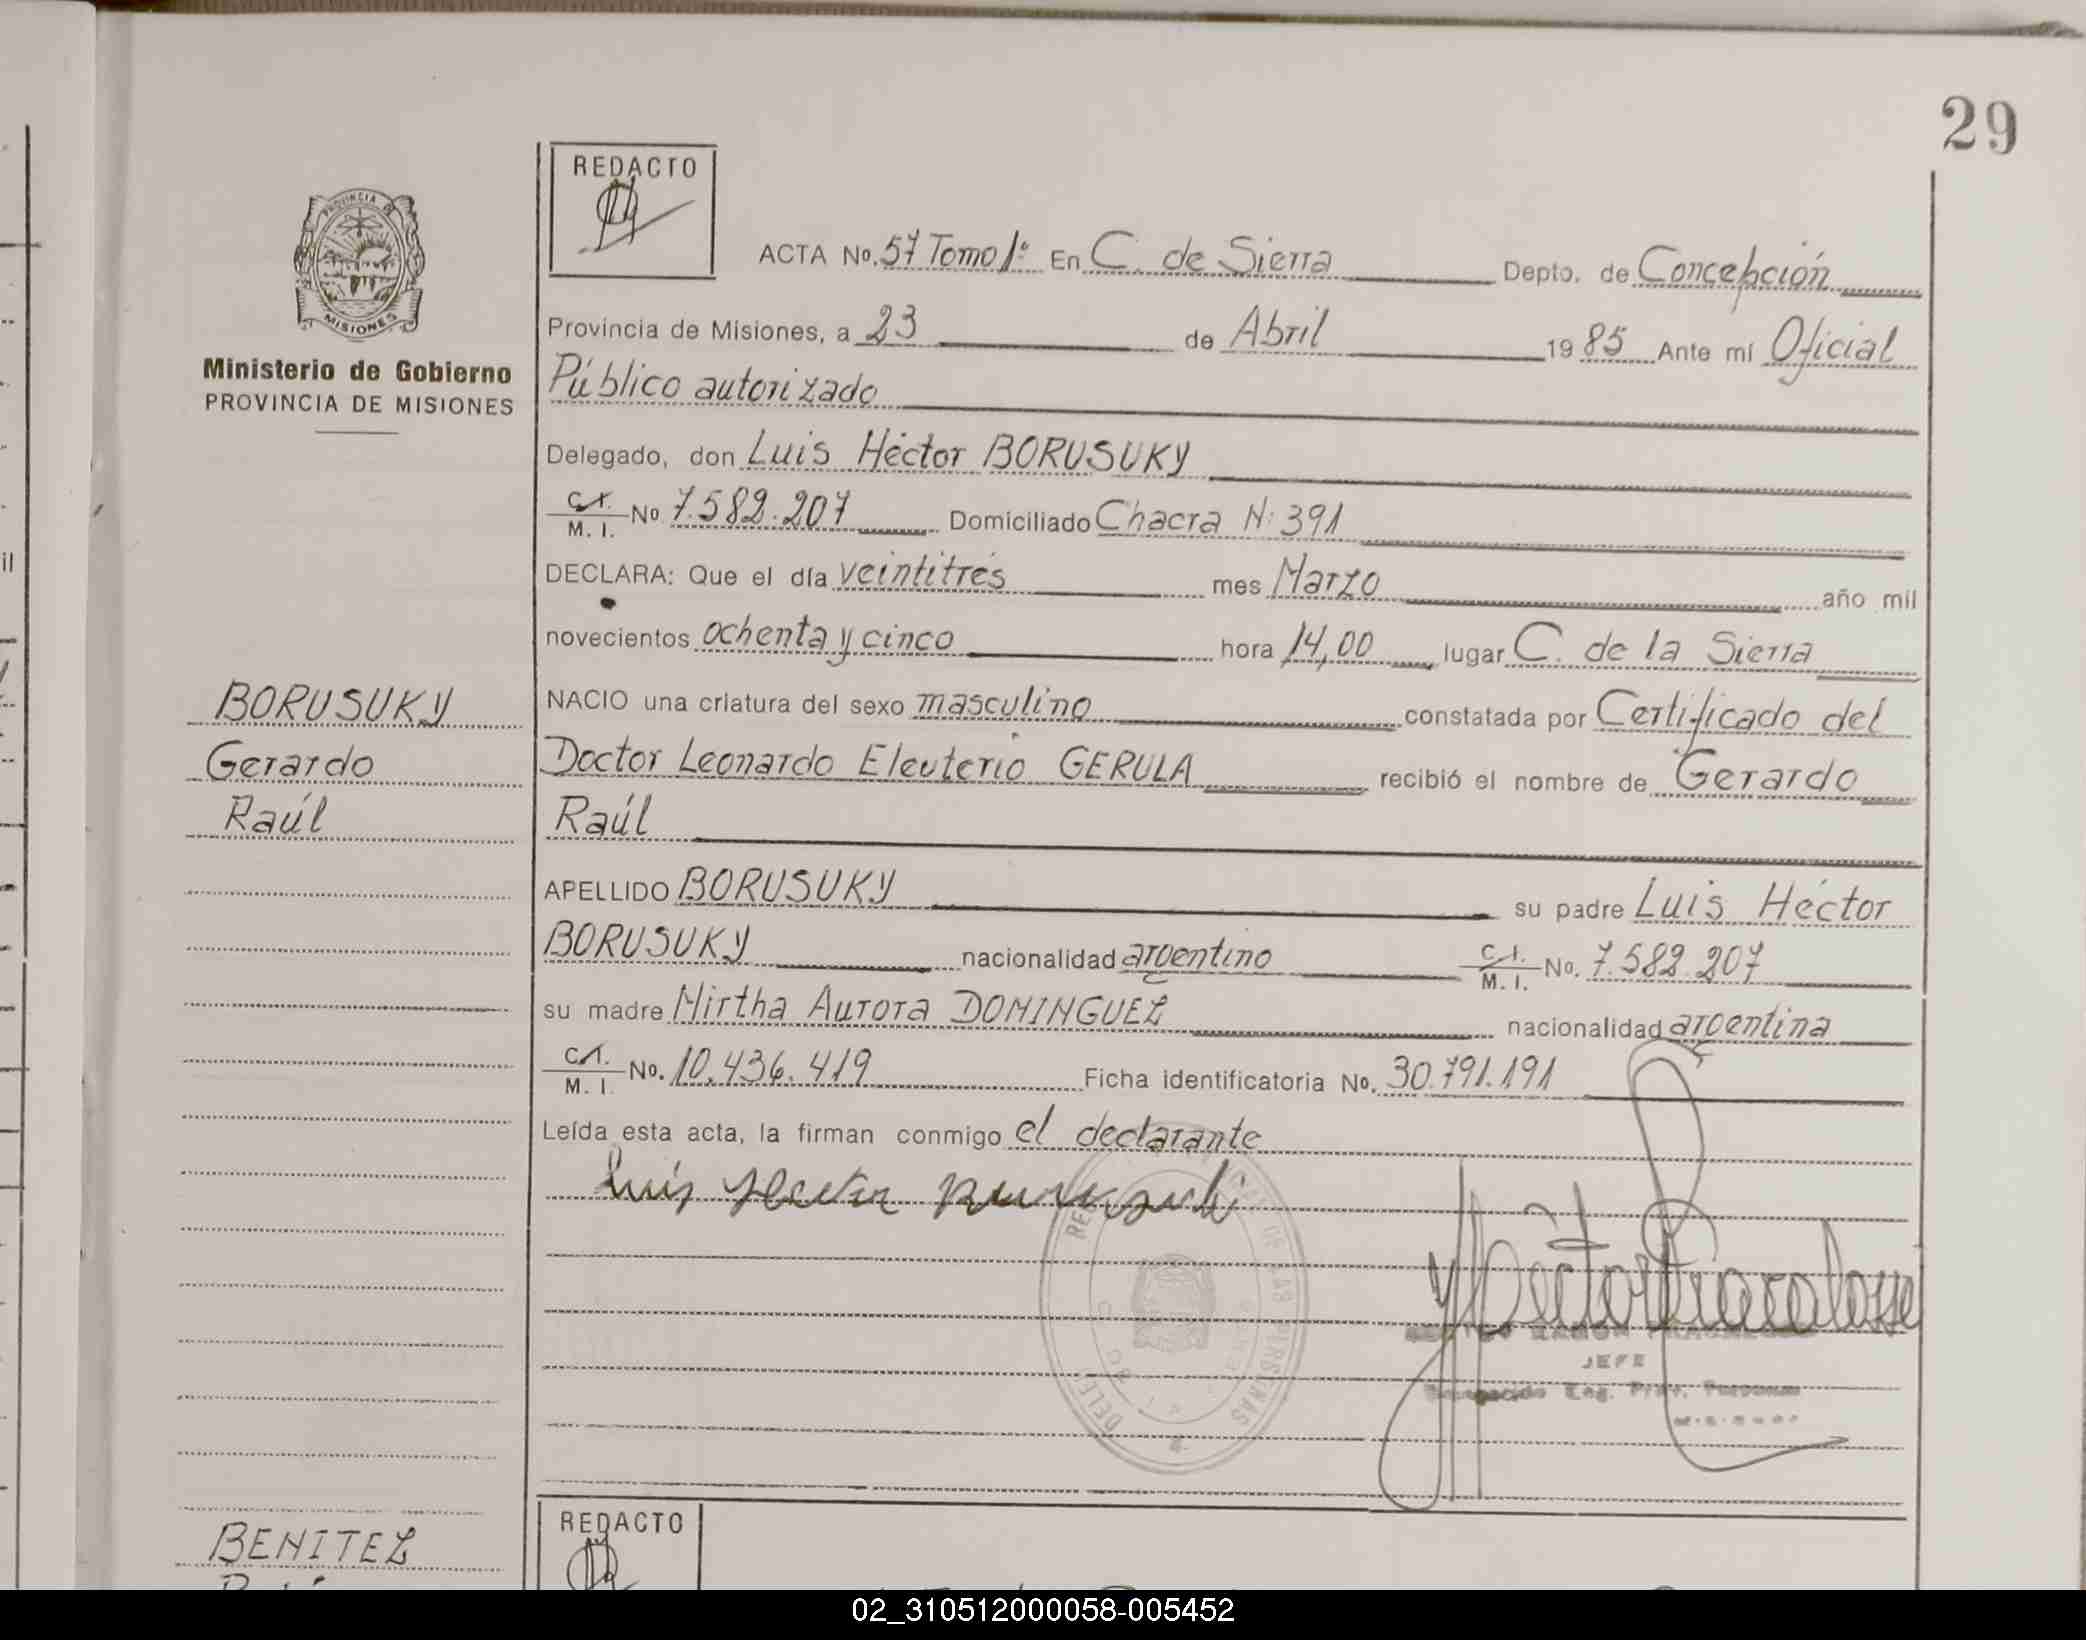 29
REDACTO
PROVINCIA DE
MISIONES
Ministerio de Gobierno
PROVINCIA DE MISIONES
ACTA No. 57 Tomo 1º En C. de Sierra Depto. de Concepción
Provincia de Misiones, a 23 de Abril 1985 Ante mí Oficial
Público autorizado
Delegado, don Luis Héctor BORUSUKY
C.I. M. I. No 7.582.207 Domiciliado Chacra N: 391
DECLARA: Que el día veintitrés mes Marzo año mil
novecientos ochenta y cinco hora 14,00 lugar C. de la Sierra
NACIO una criatura del sexo masculino constatada por Certificado del
Doctor Leonardo Eleuterio GERULA recibió el nombre de Gerardo
Raúl
APELLIDO BORUSUKY su padre Luis Héctor
BORUSUKY nacionalidad argentino C.I. M. I. No. 7.582.207
su madre Mirtha Aurora DOMINGUEZ nacionalidad argentina
C.I. M. I. No. 10.436.419 Ficha identificatoria No. 30.791.191
Leída esta acta, la firman conmigo el declarante
BORUSUKY
Gerardo
Raúl
Luis Hector
JEFE
REDACTO
BENITEZ
02_310512000058-005452